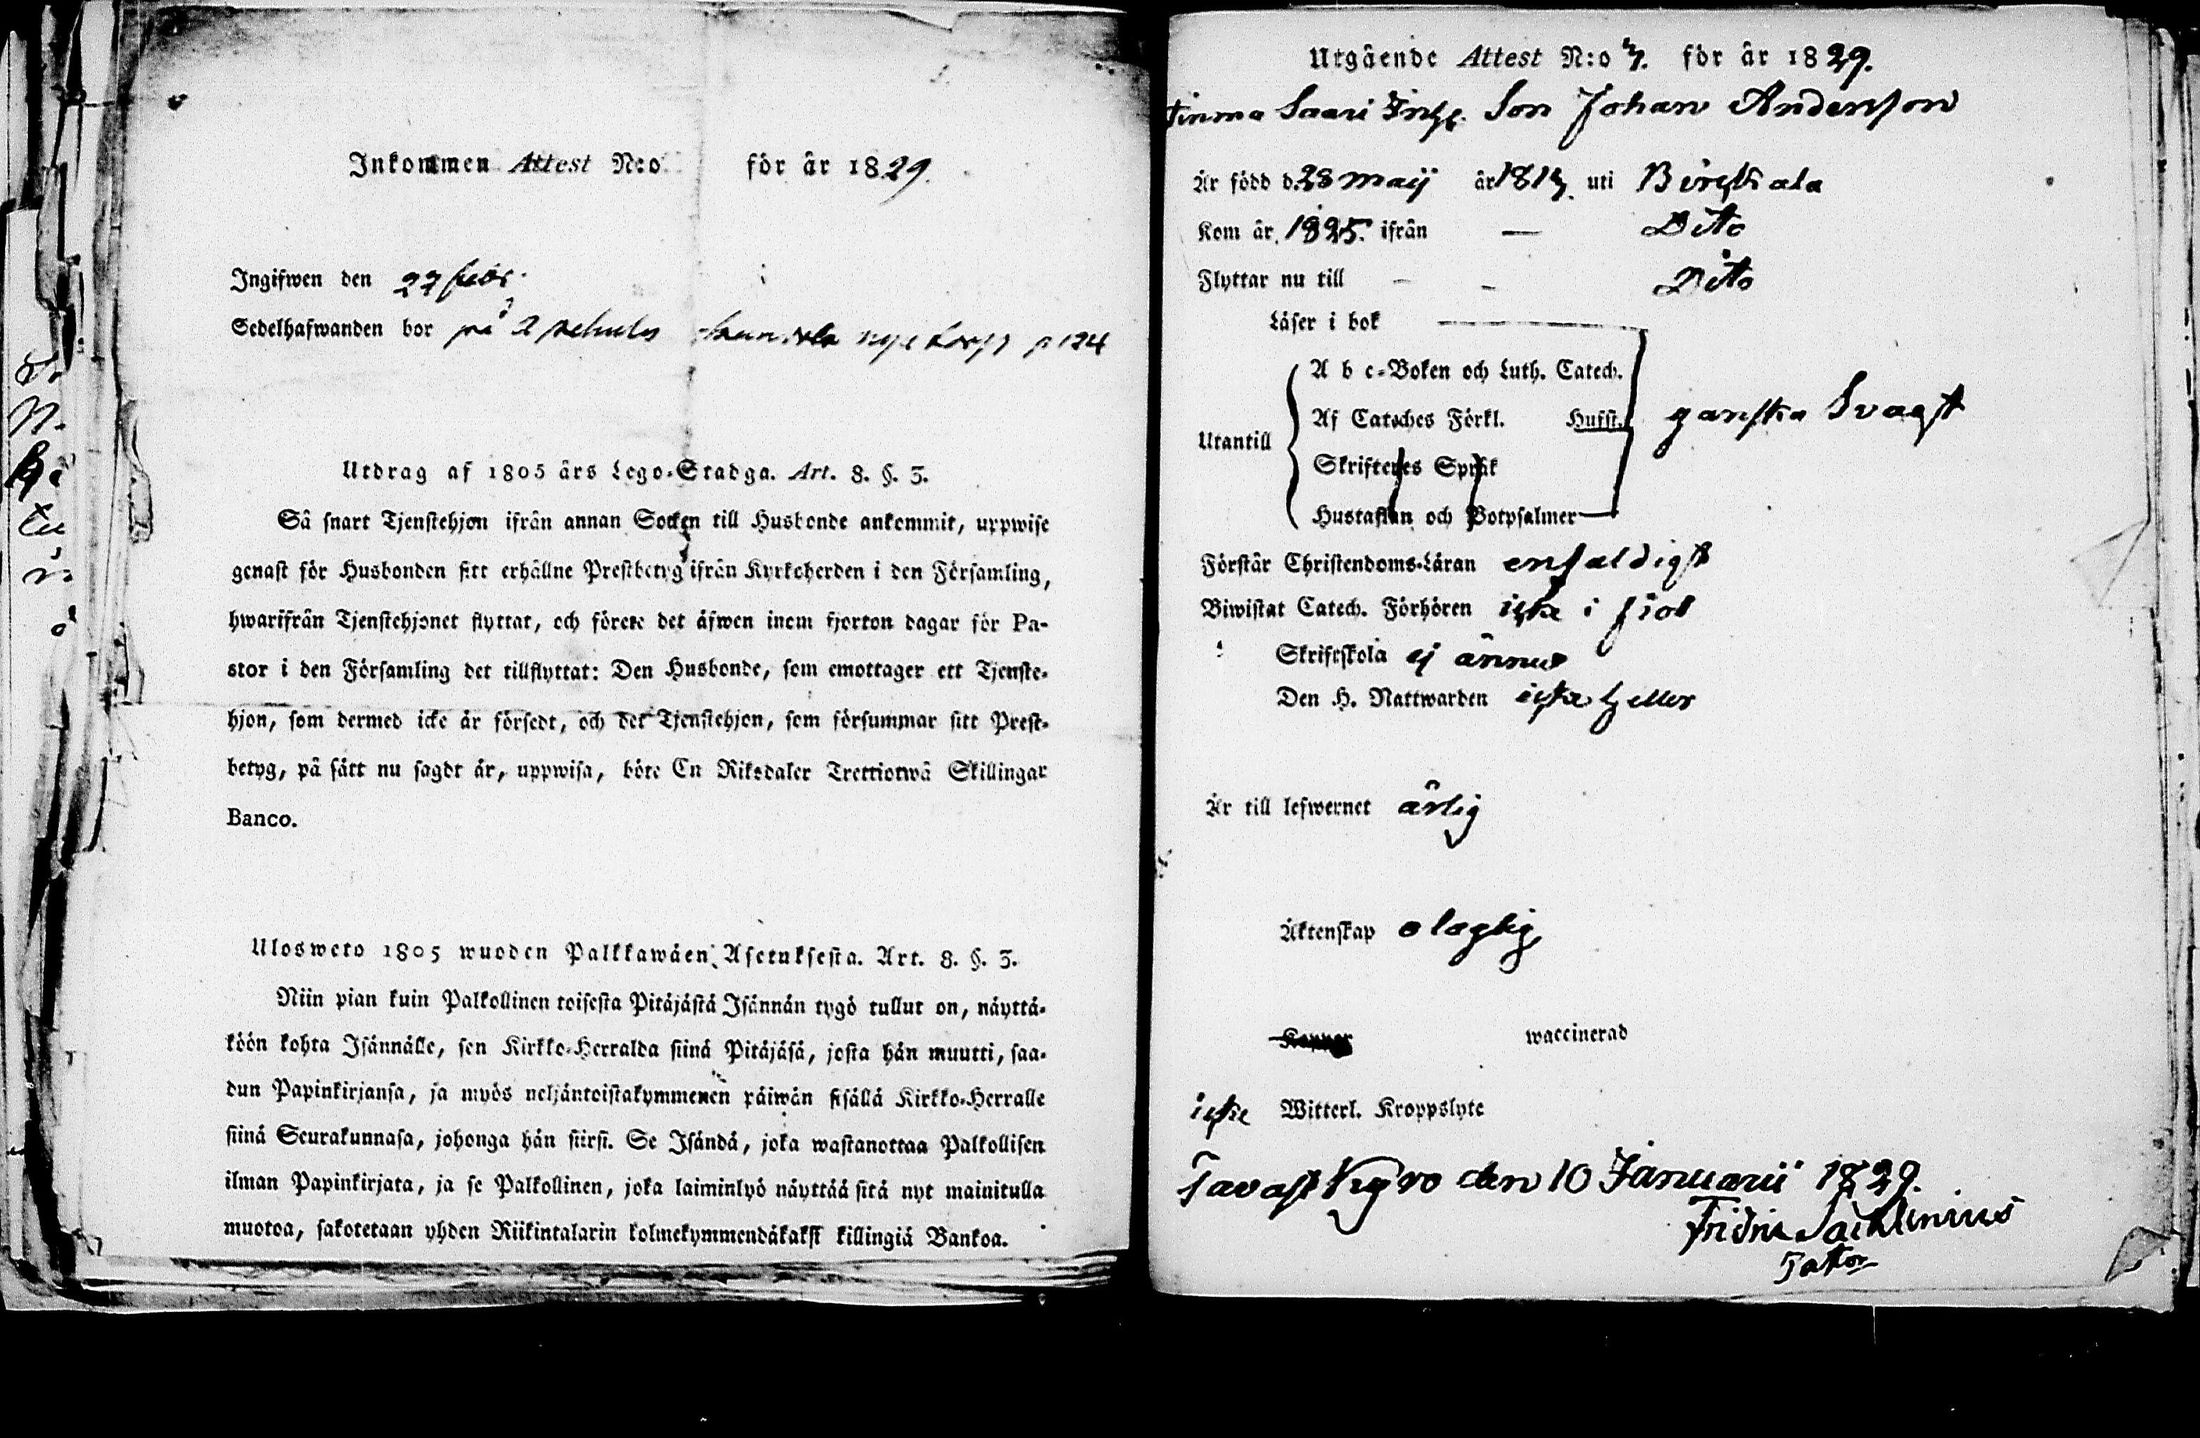 Inkommen Attest N:o för år 1829.
Ingifwen den 27 febr.
Sedelhafwanden bor på
Utdrag af 1805 års Lego-Stadga. Art. 8. §. 3.
Så snart Tjenstehjon ifrån annan Socken till Husbonde ankommit, uppwise
genast för Husbonden sitt erhållne Prestbetyg ifrån Kyrkoherden i den Församling,
hwarifrån Tjenstehjonet flyttat, och förete det äfwen inom fjorton dagar för Pa-
stor i den Församling det tillflyttat: Den Husbonde, som emottager ett Tjenste-
hjon, som dermed icke är försedt, och det Tjenstehjon, som försummar sitt Prest-
betyg, på sätt nu sagdt är, uppwisa, böte En Riksdaler Trettiotwå Skillingar
Banco.
Ulosweto 1805 wuoden Palkkawäen Asetuksesta. Art. 8. §. 3.
Niin pian kuin Palkollinen toisesta Pitäjästä Isännän tygö tullut on, näyttä-
köön kohta Isännälle, sen Kirkko-Herralda siinä Pitäjäsä, josta hän muutti, saa-
dun Papinkirjansa, ja myös neljäntoistakymmenen päiwän sisällä Kirkko-Herralle
siinä Seurakunnasa, johonga hän siirsi. Se Isändä, joka wastanottaa Palkollisen
ilman Papinkirjata, ja se Palkollinen, joka laiminlyö näyttää sitä nyt mainitulla
muotoa, sakotetaan yhden Riikintalarin kolmekymmendäkaksi killingiä Bankoa.
Utgående Attest N:o 7. för år 1829.
Saari Inhs. Son Johan Andersson
Är född d. 28 maij år uti Birckala
Kom år 1825. ifrån — Dito
Flyttar nu till - - Dito
Läser i bok
A b c-Boken och Luth. Catech.
Af Cateches Förkl. Husst.
ganska Svagt
Utantill
Skriftenes Språk
Hustaflan och Botpsalmer
Förstår Christendoms-Läran enfaldigt
Biwistat Catech. Förhören icke i fiol
Skriftskola ej ännu
Den H. Nattwarden icke heller
Är till lefwernet ärlig
Äktenskap olaglig
Koppor waccinerad
icke Witterl. Kroppslyte
Tavast Kyro den 10 Januarii 1829.
Fridric Sacklinius
Pastor